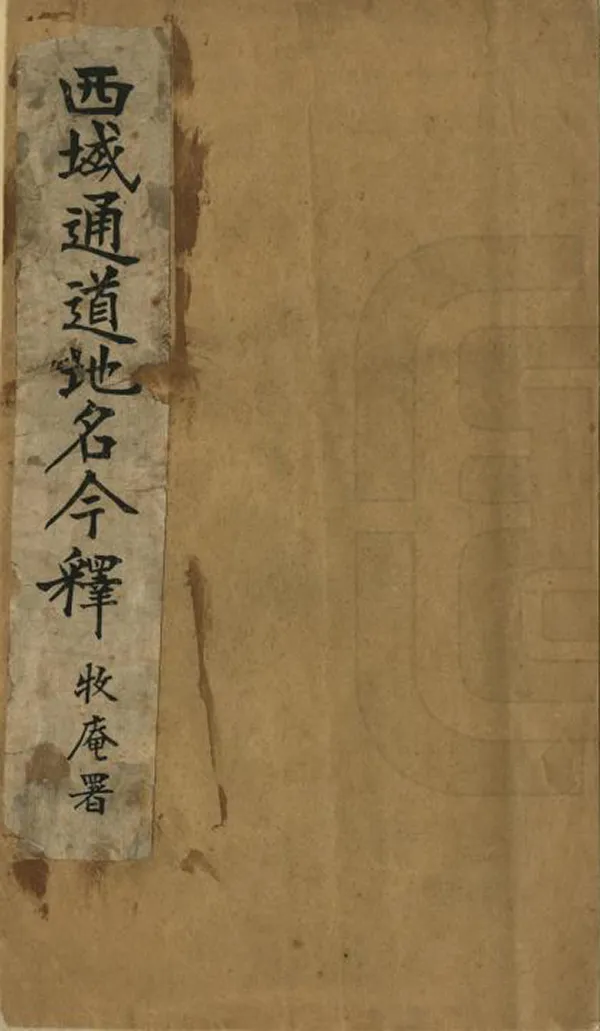 西域通道地名今釋
牧庵署